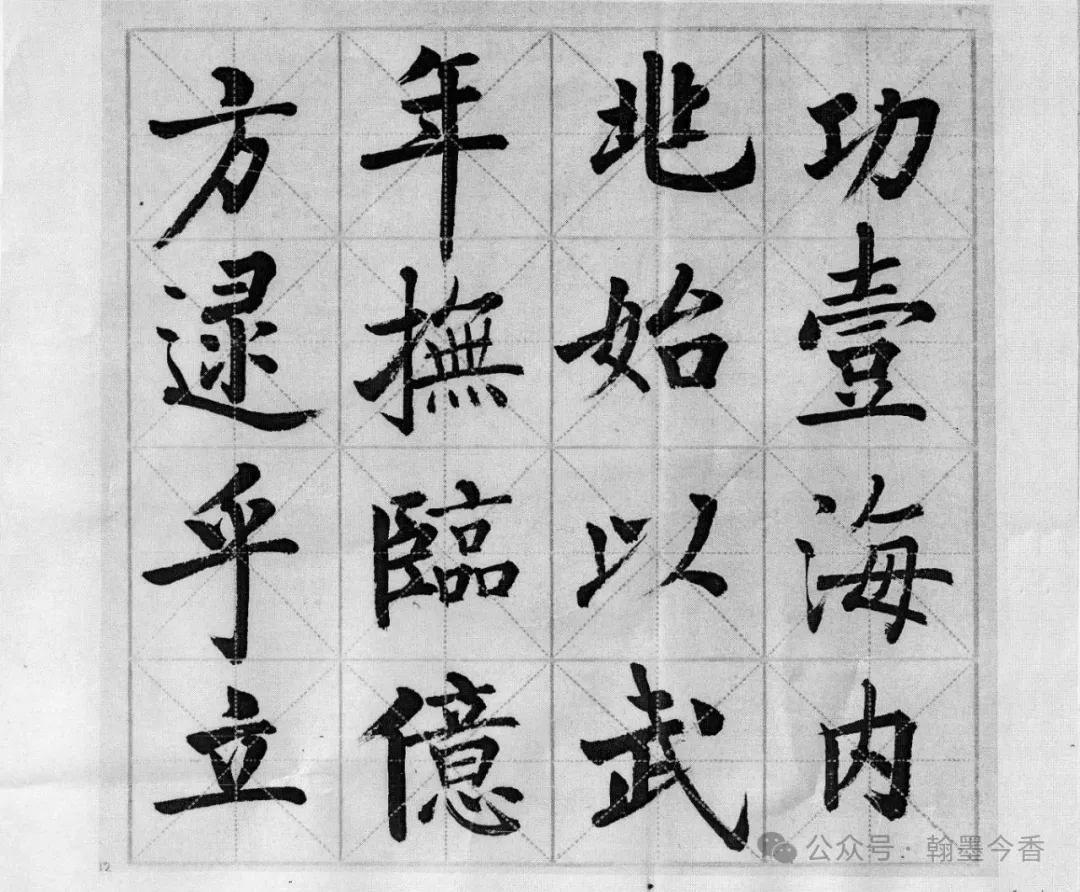 方逮乎立
年撫臨億
兆始以武
功壹海内
12
公众号 · 翰墨今香